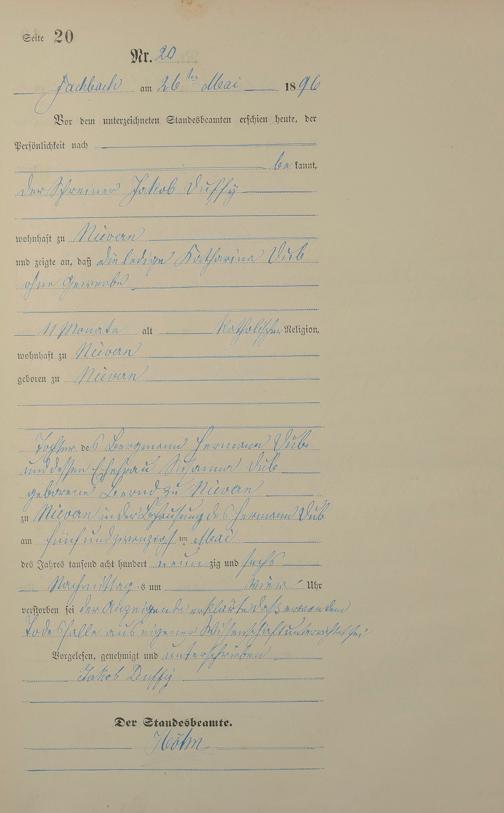 Seite 20
Nr. 20
Fachbach am 26ten Mai 1896
Vor dem unterzeichneten Standesbeamten erschien heute, der
Persönlichkeit nach
be kannt,
der Schreiner Jakob Duffy
wohnhaft zu Nievern
und zeigte an, daß die ledige Katharina Dub
ohne Gewerbe
11 Monate alt katholischer Religion,
wohnhaft zu Nievern
geboren zu Nievern
Tochter des Bergmann Hermann Dub
und dessen Ehefrau Susanna Dub
geborene zu Nievern
zu Nievern in der Behausung des Hermann Dub
am fünfundzwanzigsten Mai
des Jahres tausend acht hundert neun zig und sechs
Nachmittags um vier Uhr
verstorben sei der Anzeigende erklärte daß er von dem
Todesfalle aus eigener Wissenschaft unterrichtet sei
Vorgelesen, genehmigt und unterschrieben
Jakob Duffy
Der Standesbeamte.
Höhn